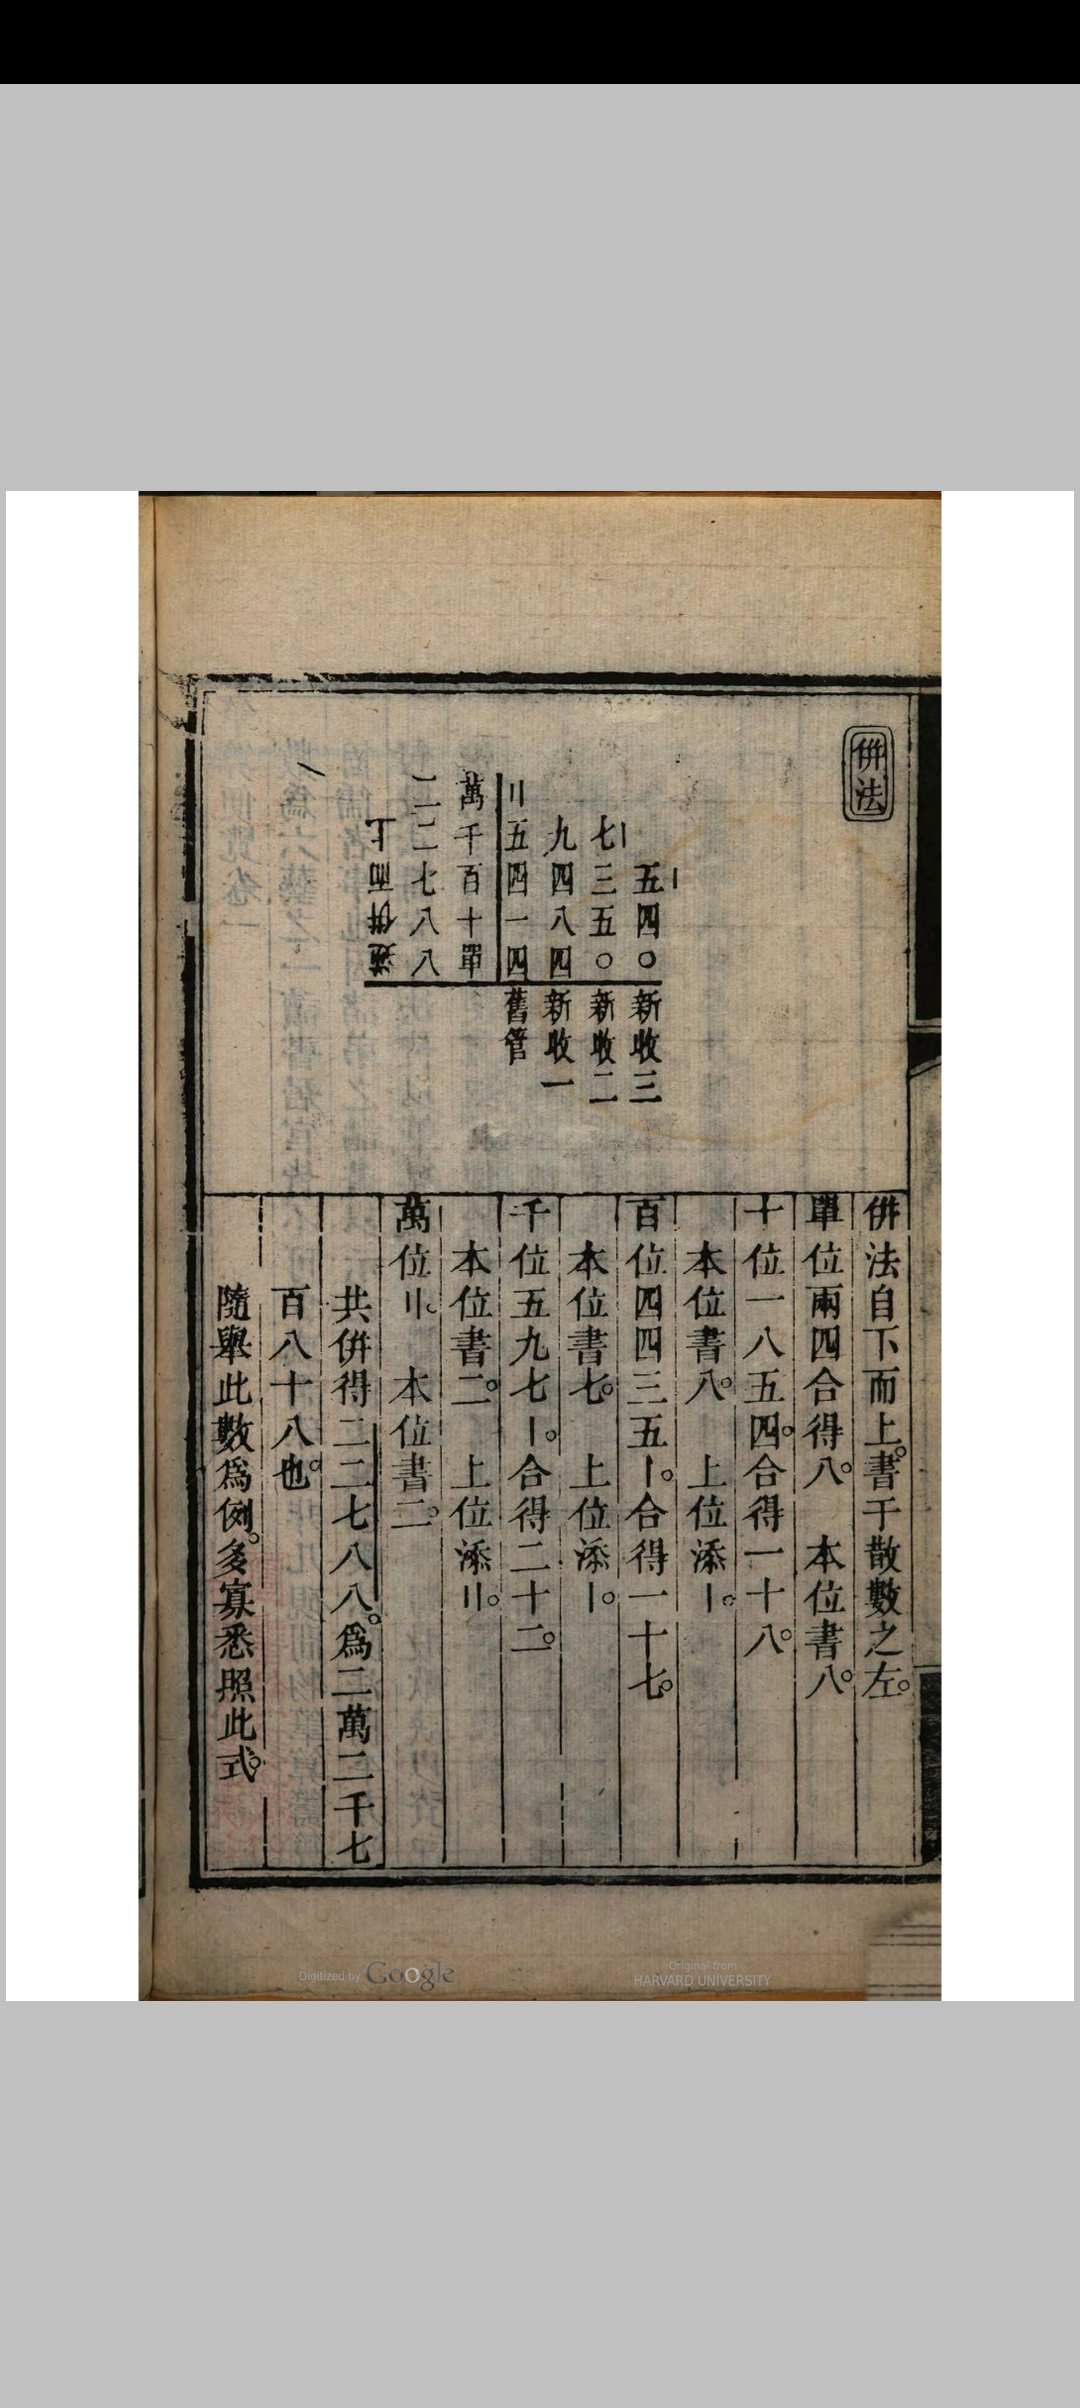 併法
丨
五四〇新收三
丨
七三五〇新收二
九四八四新收一
〢五四一四舊管
萬千百十單
二二七八八
併而上
併法自下而上。書于散數之左。
單位兩四合得八。本位書八。
十位一八五四。合得一十八。
本位書八。上位添〡。
百位四四三五〡。合得一十七。
本位書七。上位添〡。
千位五九七〡。合得二十二。
本位書二。上位添〢。
萬位〢。本位書二。
共併得二二七八八。爲二萬二千七
百八十八也。
隨舉此數爲例。多寡悉照此式。
Digitized by Google
Original from
HARVARD UNIVERSITY